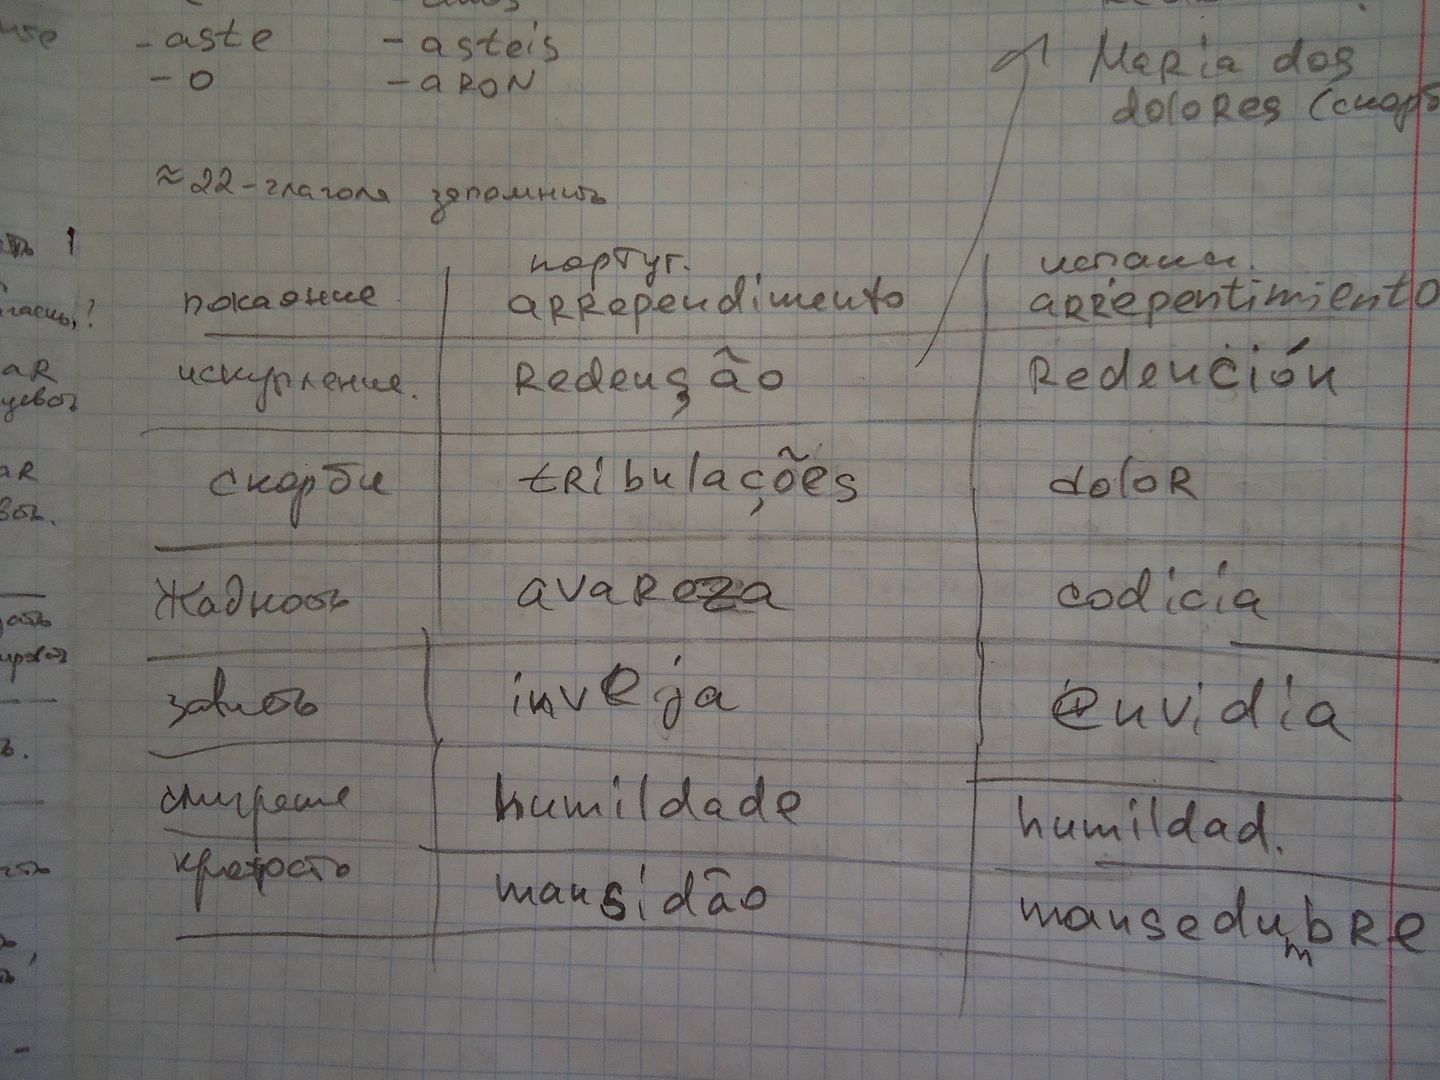 -aste -asteis
-o -aRON
Maria dos
dolores (скорб
≈22-глагола запомнить
португ. испанск.
покаяние arrependimento arrepentimiento
искупление. Redenção Redención
скорби tRibulações doloR
Жадность avareza codicia
зависть inveja envidia
смирение humildade humildad.
кротость mansidão mansedumbRe